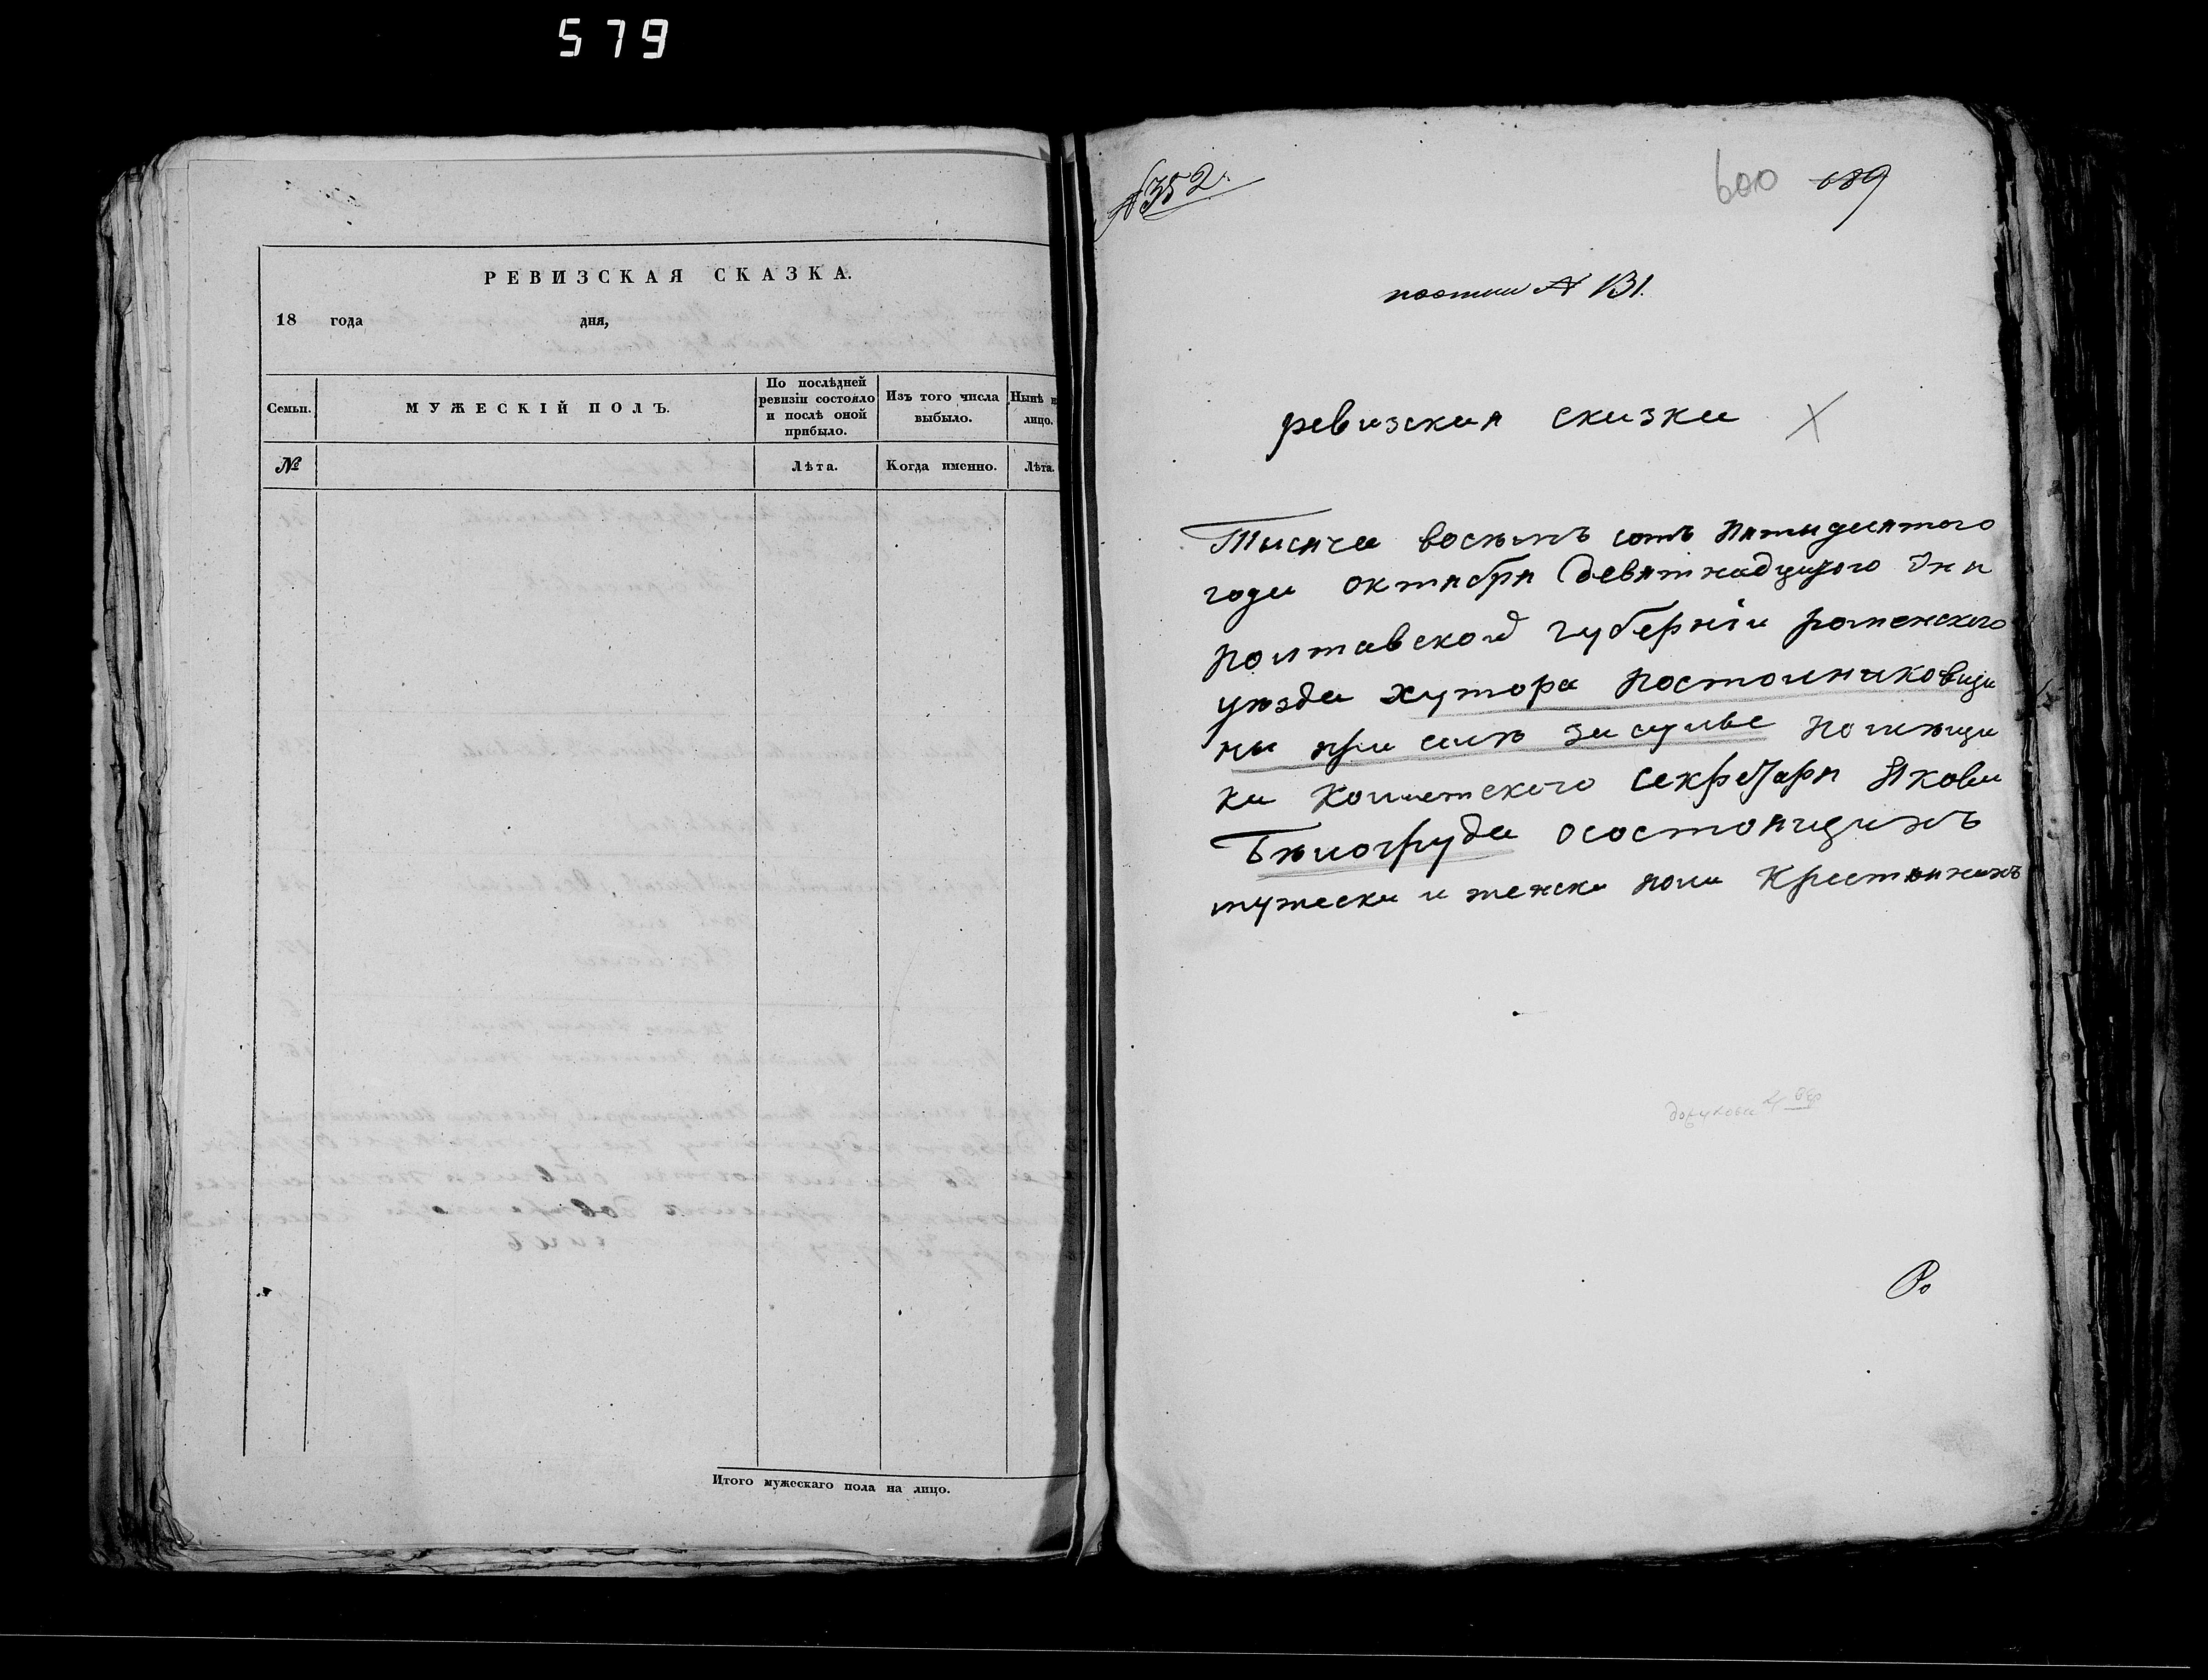 579
РЕВИЗСКАЯ СКАЗКА.
18 года дня,
Семьи.
МУЖЕСКІЙ ПОЛЪ.
По послѣдней ревизіи состояло и послѣ оной прибыло.
Изъ того числа выбыло.
Нынѣ
лицо.
№
Лѣта.
Когда именно.
Лѣта.
Итого мужескаго пола на лицо.
№ 352.
600 689
№ 131.
ревизская сказка
Тысяча восѣмъ сотъ пятыдесятого
года октября девятнадцатого дня
полтавской губерніи роменского
уѣзда хутора постолниковщи
ны при селѣ засулье помѣщи
ка колѣтского секретаря якова
Бѣлогруда осостоящихъ
мужеска и женска пола крестянихъ
Ро